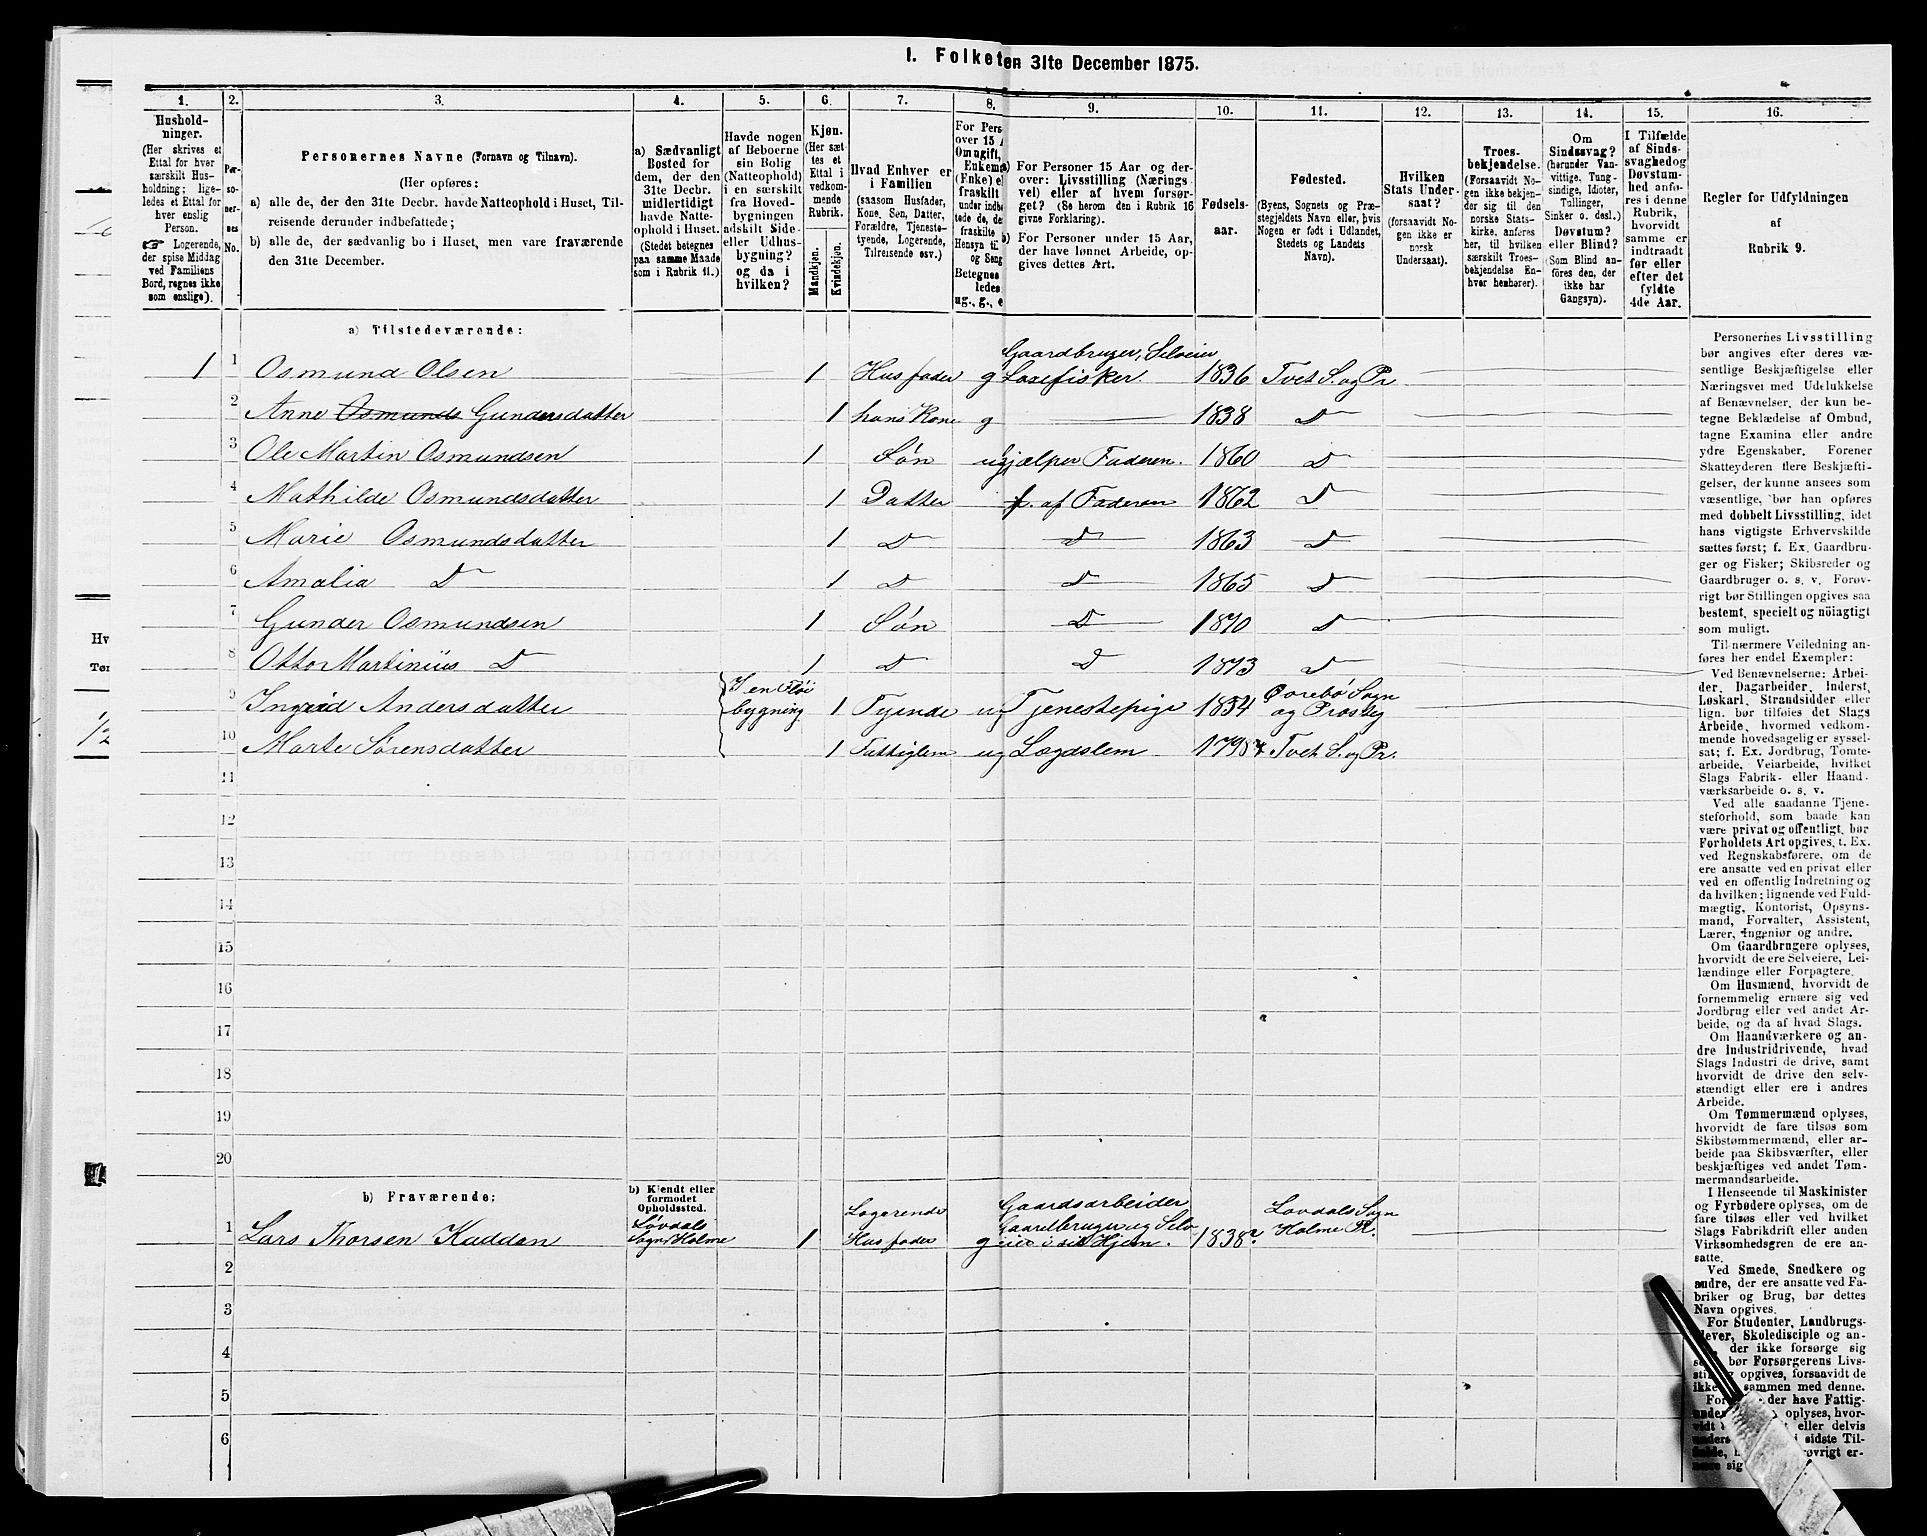 I. Folketen 31te December 1875.
1. 2. 3. 4. 5. 6. 7. 8. 9. 10. 11. 12. 13. 14. 15. 16.
Hushold-
ninger.
(Her skrives et
Ettal for hver
særskilt Hus-
holdning; lige-
ledes et Ettal for
hver enslig
Person.
☞ Logerende,
der spise Middag
ved Familiens
Bord, regnes ikke
som enslige).
Per-
so-
ner-
nes
No.
Personernes Navne (Fornavn og Tilnavn).
(Her opføres:
a) alle de, der den 31te Decbr. havde Natteophold i Huset, Til-
reisende derunder indbefattede;
b) alle de, der sædvanlig bo i Huset, men vare fraværende
den 31te December.
a) Sædvanligt
Bosted for
dem, der den
31te Decbr.
midlertidigt
havde Natte-
ophold i Huset.
(Stedet betegnes
paa samme Maade
som i Rubrik 11.)
Havde nogen
af Beboerne
sin Bolig
(Natteophold)
i en særskilt
fra Hoved-
bygningen
adskilt Side-
eller Udhus-
bygning?
og da i
hvilken?
Kjøn.
(Her sæt-
tes et
Ettal i
vedkom-
mende
Rubrik.
Mandkjøn.
Kvindekjøn.
Hvad Enhver er
i Familien
(saasom Husfader,
Kone, Søn, Datter,
Forældre, Tjeneste-
tyende, Logerende,
Tilreisende osv.)
For Pers
over 15 A
Om ugift,
Enkema
(Enke) el
fraskilt
under indbe
tede de, de
fraskilte
Hensyn til
og Seng
Betegnes
ledes
ug., g., e
a) For Personer 15 Aar og der-
over: Livsstilling (Nærings-
vei) eller af hvem forsør-
get? (Se herom den i Rubrik 16
givne Forklaring).
b) For Personer under 15 Aar,
der have lønnet Arbeide, op-
gives dettes Art.
Fødsels-
aar.
Fødested.
(Byens, Sognets og Præ-
stegjeldets Navn eller, hvis
Nogen er født i Udlandet,
Stedets og Landets
Navn).
Hvilken
Stats Under-
saat?
(forsaavidt No-
gen ikke er
norsk
Undersaat).
Troes-
bekjendelse.
(Forsaavidt No-
gen ikke bekjen-
der sig til den
norske Stats-
kirke, anføres
her, til hvilken
særskilt Troes-
bekjendelse En-
hver henhører).
Om
Sindssvag?
(herunder Van-
vittige, Tung-
sindige, Idioter,
Tullinger,
Sinker o. desl.)
Døvstum?
eller Blind?
(Som Blind an-
føres den, der
ikke har
Gangsyn).
I Tilfælde
af Sinds-
svaghed og
Døvstum-
hed anfø-
res i denne
Rubrik,
hvorvidt
samme er
indtraadt
før eller
efter det
fyldte
4de Aar.
Regler for Udfyldningen
af
Rubrik 9.
a) Tilstedeværende:
Gaardbruger, Selveier
1 1 Osmund Olsen 1 Husfader g Losefisker. 1836 Tvet S. og Pr
2 Anne Osmunds Gundersdatter 1 hans Kone g 1838 D
3 Ole Martin Osmundsen 1 Søn ug hjælper Faderen. 1860 D
4 Mathilde Osmundsdatter 1 Datter f. af Faderen 1862 D
5 Marie Osmundsdatter 1 D D 1863 D
6 Amalia D 1 D D 1865 D
7 Gunder Osmundsen 1 Søn D 1870 D
8 Otto Martinius D 1 D D 1873 D
9 Ingrid Andersdatter I en Fløi
bygning 1 Tyende ug Tjenestepige 1834 Sogn
og Prostg
10 Marte Sørensdatter 1 Fattiglem ug Lægdslem 1798 Tvet S. og Pr.
11
12
13
14
15
16
17
18
19
20
b) Fraværende:
b) Kjendt eller
formodet
Opholdssted.
Logerende Gaardsarbeider Lovdals Sogn
Løvdals Gaardbruger og Selv Holme Pr.
1 Lars Thorsen Kaddan Sogn Holme 1 Husfader g eier i sit Hjem. 1838?
2
3
4
5
6
Personernes Livsstilling
bør angives efter deres væ-
sentlige Beskjæftigelse eller
Næringsvei med Udelukkelse
af Benævnelser, der kun be-
tegne Beklædelse af Ombud,
tagne Examina eller andre
ydre Egenskaber. Forener
Skatteyderen flere Beskjæfti-
gelser, der kunne ansees som
væsentlige, bør han opføres
med dobbelt Livsstilling, idet
hans vigtigste Erhvervskilde
sættes først; f. Ex. Gaardbru-
ger og Fisker; Skibsreder og
Gaardbruger o. s. v. Forøv-
rigt bør Stillingen opgives saa
bestemt, specielt og nöiagtigt
som muligt.
Til nærmere Veiledning an-
føres her endel Exempler:
Ved Benævnelserne: Arbei-
der, Dagarbeider, Inderst,
Løskarl, Strandsidder eller
lign. bør tilføies det Slags
Arbeide, hvormed vedkom-
mende hovedsagelig er syssel-
sat; f. Ex. Jordbrug, Tomte-
arbeide, Veiarbeide, hvilket
Slags Fabrik- eller Haand-
værksarbeide o. s. v.
Ved alle saadanne Tjene-
steforhold, som baade kan
være privat og offentligt, bør
Forholdets Art opgives, t. Ex.
ved Regnskabsførere, om de
ere ansatte ved en privat eller
ved en offentlig Indretning og
da hvilken; lignende ved Fuld-
mægtig, Kontorist, Opsyns-
mand, Forvalter, Assistent,
Lærer, Ingeniør og andre.
Om Gaardbrugere oplyses,
hvorvidt de ere Selveiere, Lei-
lændinge eller Forpagtere.
Om Husmænd, hvorvidt de
fornemmelig ernære sig ved
Jordbrug eller ved andet Ar-
beide, og da af hvad Slags.
Om Haandværkere og an-
dre Industridrivende, hvad
Slags Industri de drive, samt
hvorvidt de drive den selv-
stændigt eller ere i andres
Arbeide.
Om Tømmermænd oplyses,
hvorvidt de fare tilsøs som
Skibstømmermænd, eller ar-
beide paa Skibsværfter, eller
beskjæftiges ved andet Tøm-
mermandsarbeide.
I Henseende til Maskinister
og Fyrbødere oplyses, om de
fare tilsøs eller ved hvilket
Slags Fabrikdrift eller anden
Virksomhedsgren de ere an-
satte.
Ved Smede, Snedkere og
andre, der ere ansatte ved Fa-
briker og Brug, bør dettes
Navn opgives.
For Studenter, Landbrugs-
elever, Skoledisciple og an-
der ikke forsørge sig
bør Forsørgerens Livs-
opgives, forsaavidt de
sammen med denne.
For der have Fattig-
oplyses, hvor-
eller delvis
i sidste Til-
øvrigt er-
sig